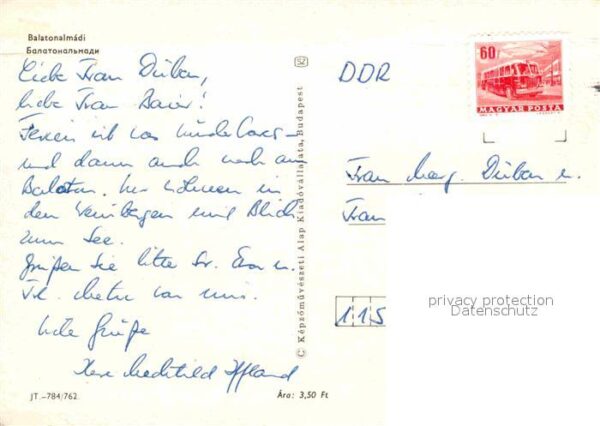 Balatonalmádi
Балатональмади
Liebe Frau Düben,
liebe Frau Baier!
Ferien ist was Wunderbares –
und dann auch noch am
Balaton. Wir wohnen in
den Weinbergen mit Blick
zum See.
Grüßen Sie bitte Sr. Eva u.
von uns.
Liebe Grüße
Ihre Mechthild Iffland
JT –784/762
Ára: 3,50 Ft
© Képzőművészeti Alap Kiadóvállalata, Budapest
SZ
DDR
60
MAGYAR POSTA
Frau Marg. Düben u.
Frau
115
privacy protection
Datenschutz